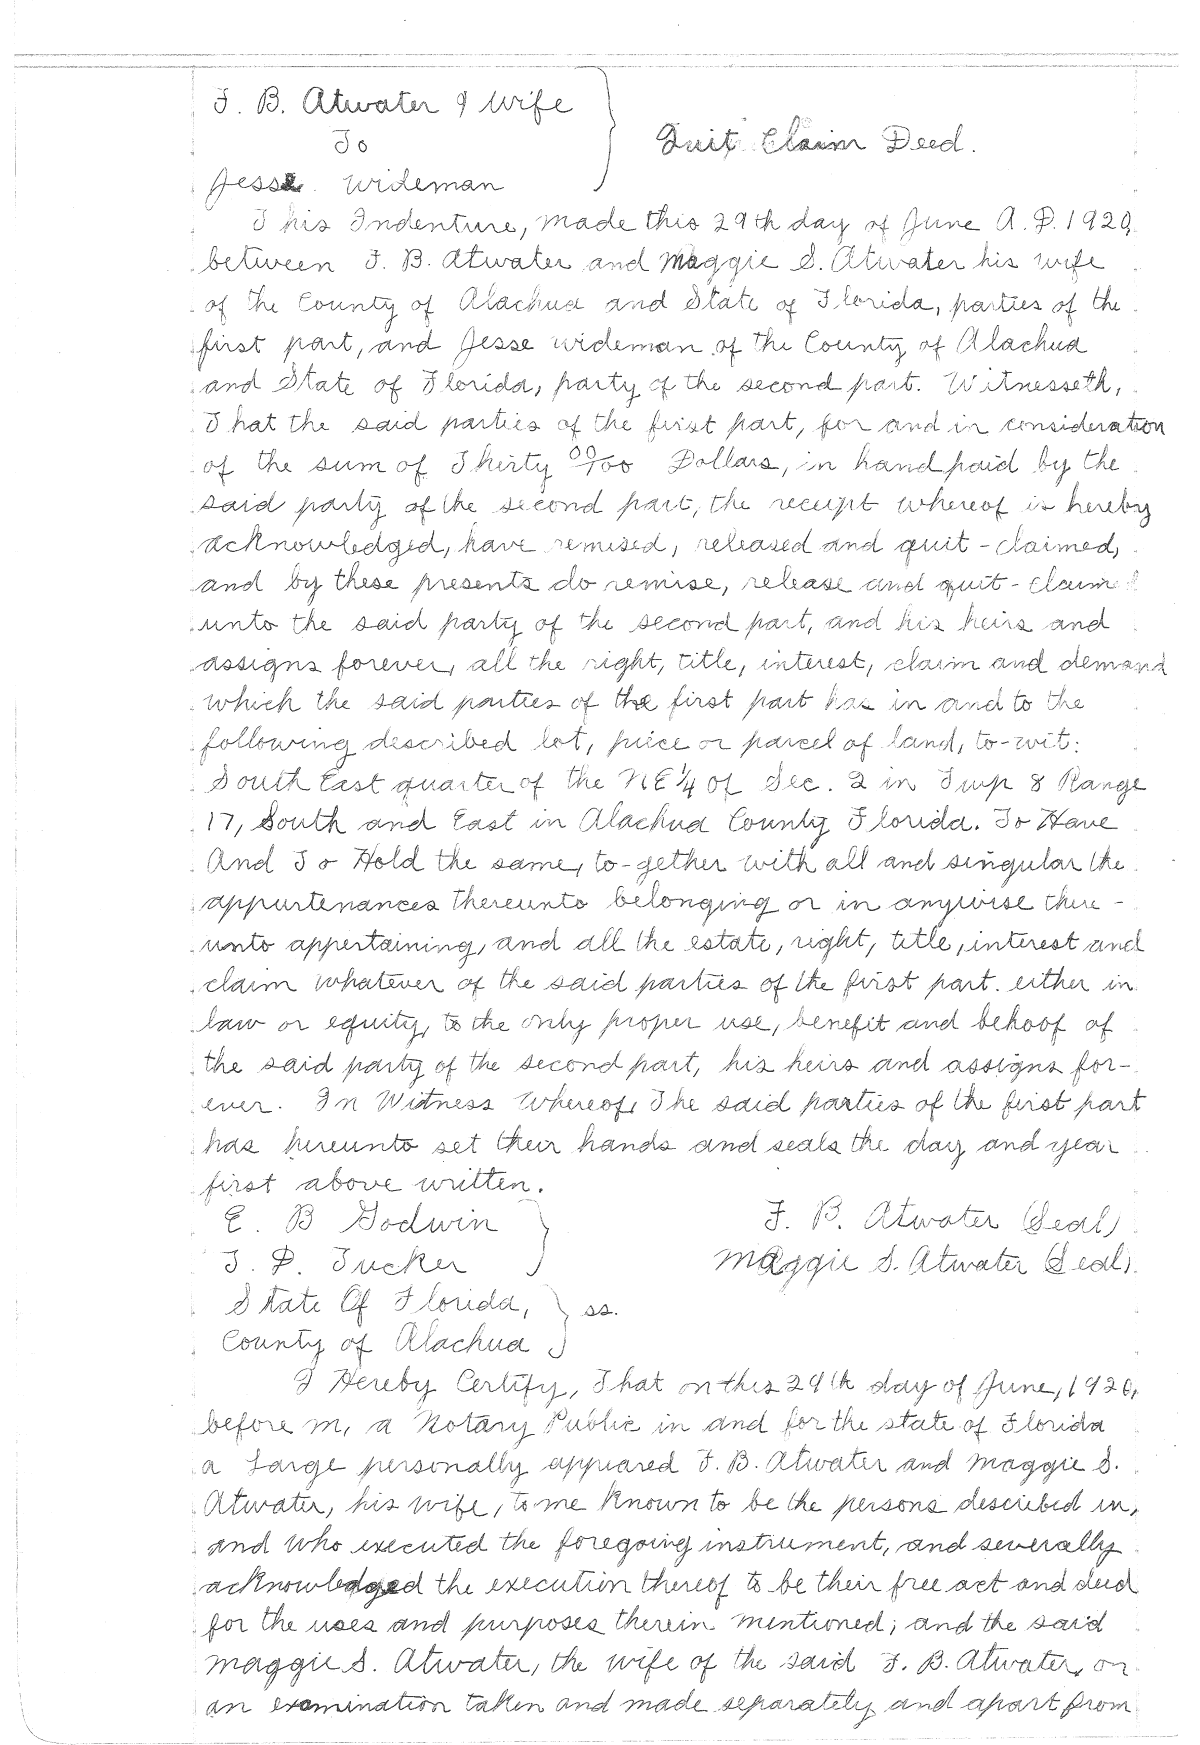 F. B. Atwater & Wife
To
Quit Claim Deed.
Jesse Wideman
This Indenture, made this 29th day of June A.D. 1920,
between F. B. Atwater and Maggie S. Atwater his wife
of the County of Alachua and State of Florida, parties of the
first part, and Jesse Wideman of the County of Alachua
and State of Florida, party of the second part. Witnesseth,
That the said parties of the first part, for and in consideration
of the sum of Thirty 00/100 Dollars, in hand paid by the
said party of the second part, the receipt whereof is hereby
acknowledged, have remised, released and quit-claimed,
and by these presents do remise, release and quit-claim
unto the said party of the second part, and his heirs and
assigns forever, all the right, title, interest, claim and demand
which the said parties of the first part has in and to the
following described lot, piece or parcel of land, to-wit:
South East quarter of the NE 1/4 of Sec. 2 in Twp 8 Range
17, South and East in Alachua County Florida. To Have
And To Hold the same, to-gether with all and singular the
appurtenances thereunto belonging or in anywise there-
unto appertaining, and all the estate, right, title, interest and
claim whatever of the said parties of the first part. either in
law or equity, to the only proper use, benefit and behoof of
the said party of the second part, his heirs and assigns for-
ever. In Witness Whereof, The said parties of the first part
has hereunto set their hands and seals the day and year
first above written.
E. B Godwin
F. B. Atwater (Seal)
T. P. Tucker
Maggie S. Atwater (Seal).
State Of Florida,
ss.
County of Alachua
I Hereby Certify, That on this 29th day of June, 1920,
before m, a Notary Public in and for the state of Florida
a Large personally appeared F. B. Atwater and Maggie S.
Atwater, his wife, to me known to be the persons described in,
and who executed the foregoing instrument, and severally
acknowledged the execution thereof to be their free act and deed
for the uses and purposes therein mentioned; and the said
Maggie S. Atwater, the wife of the said F. B. Atwater, on
an examination taken and made separately and apart from